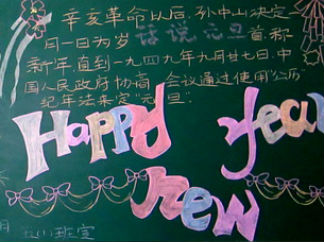 辛亥革命以后,孙中山决定
月一日为岁 话说元旦 首,称
新年,直到一九四九年九月廿七日,中
国人民政府协商会议通过使用"公历
纪年法来定"元旦"
Happy year
new
月 五(1)班宣